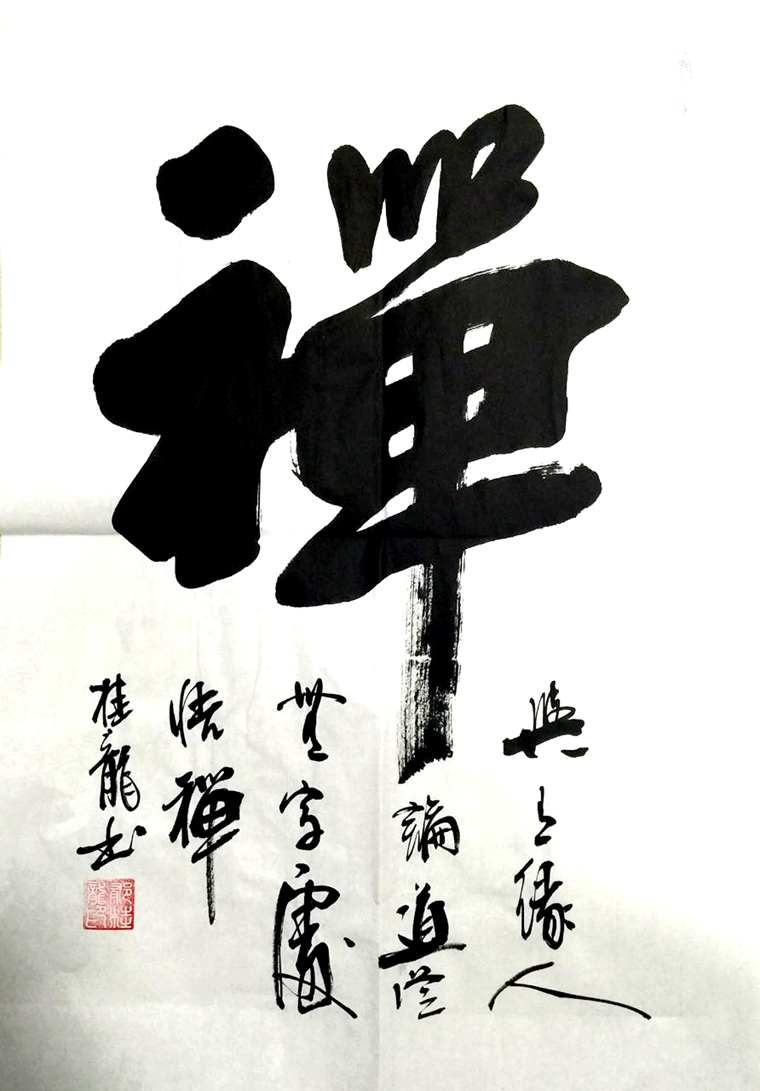 禪
與有緣人
論道從
無字處
悟禪
桂龍书